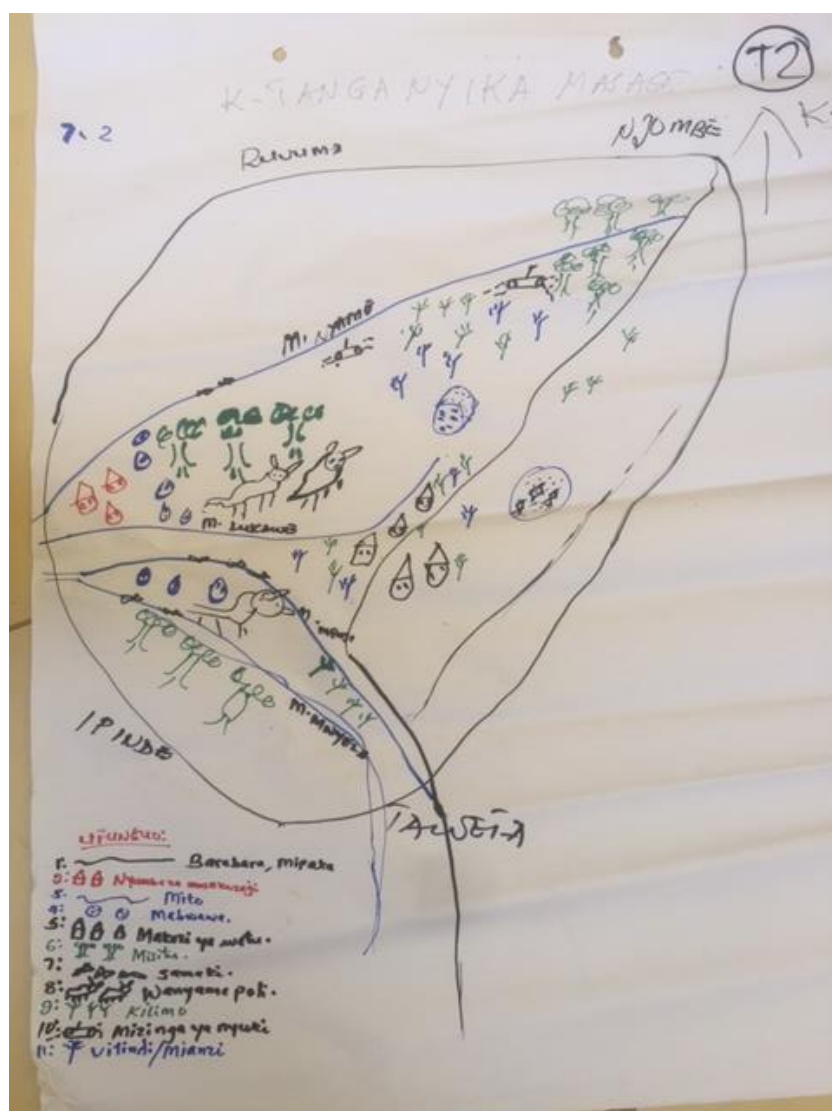 T2
K-TANGANYIKA MASAGE
7.2
NJOMBE
K
Ruvuma
M. NYAME
M. LUKAWE
M. MNYELE
IPINDE
UFUNGUO:
1. Barabara, mipaka
2: Nyumba za
3. Mito
4: Mabwawa.
5: Makazi ya watu.
6: Misitu.
7: Samaki.
8: Wanyama poli.
9: Kilimo
10: Mizinga ya nyuki
11: Ulindi/Mianzi